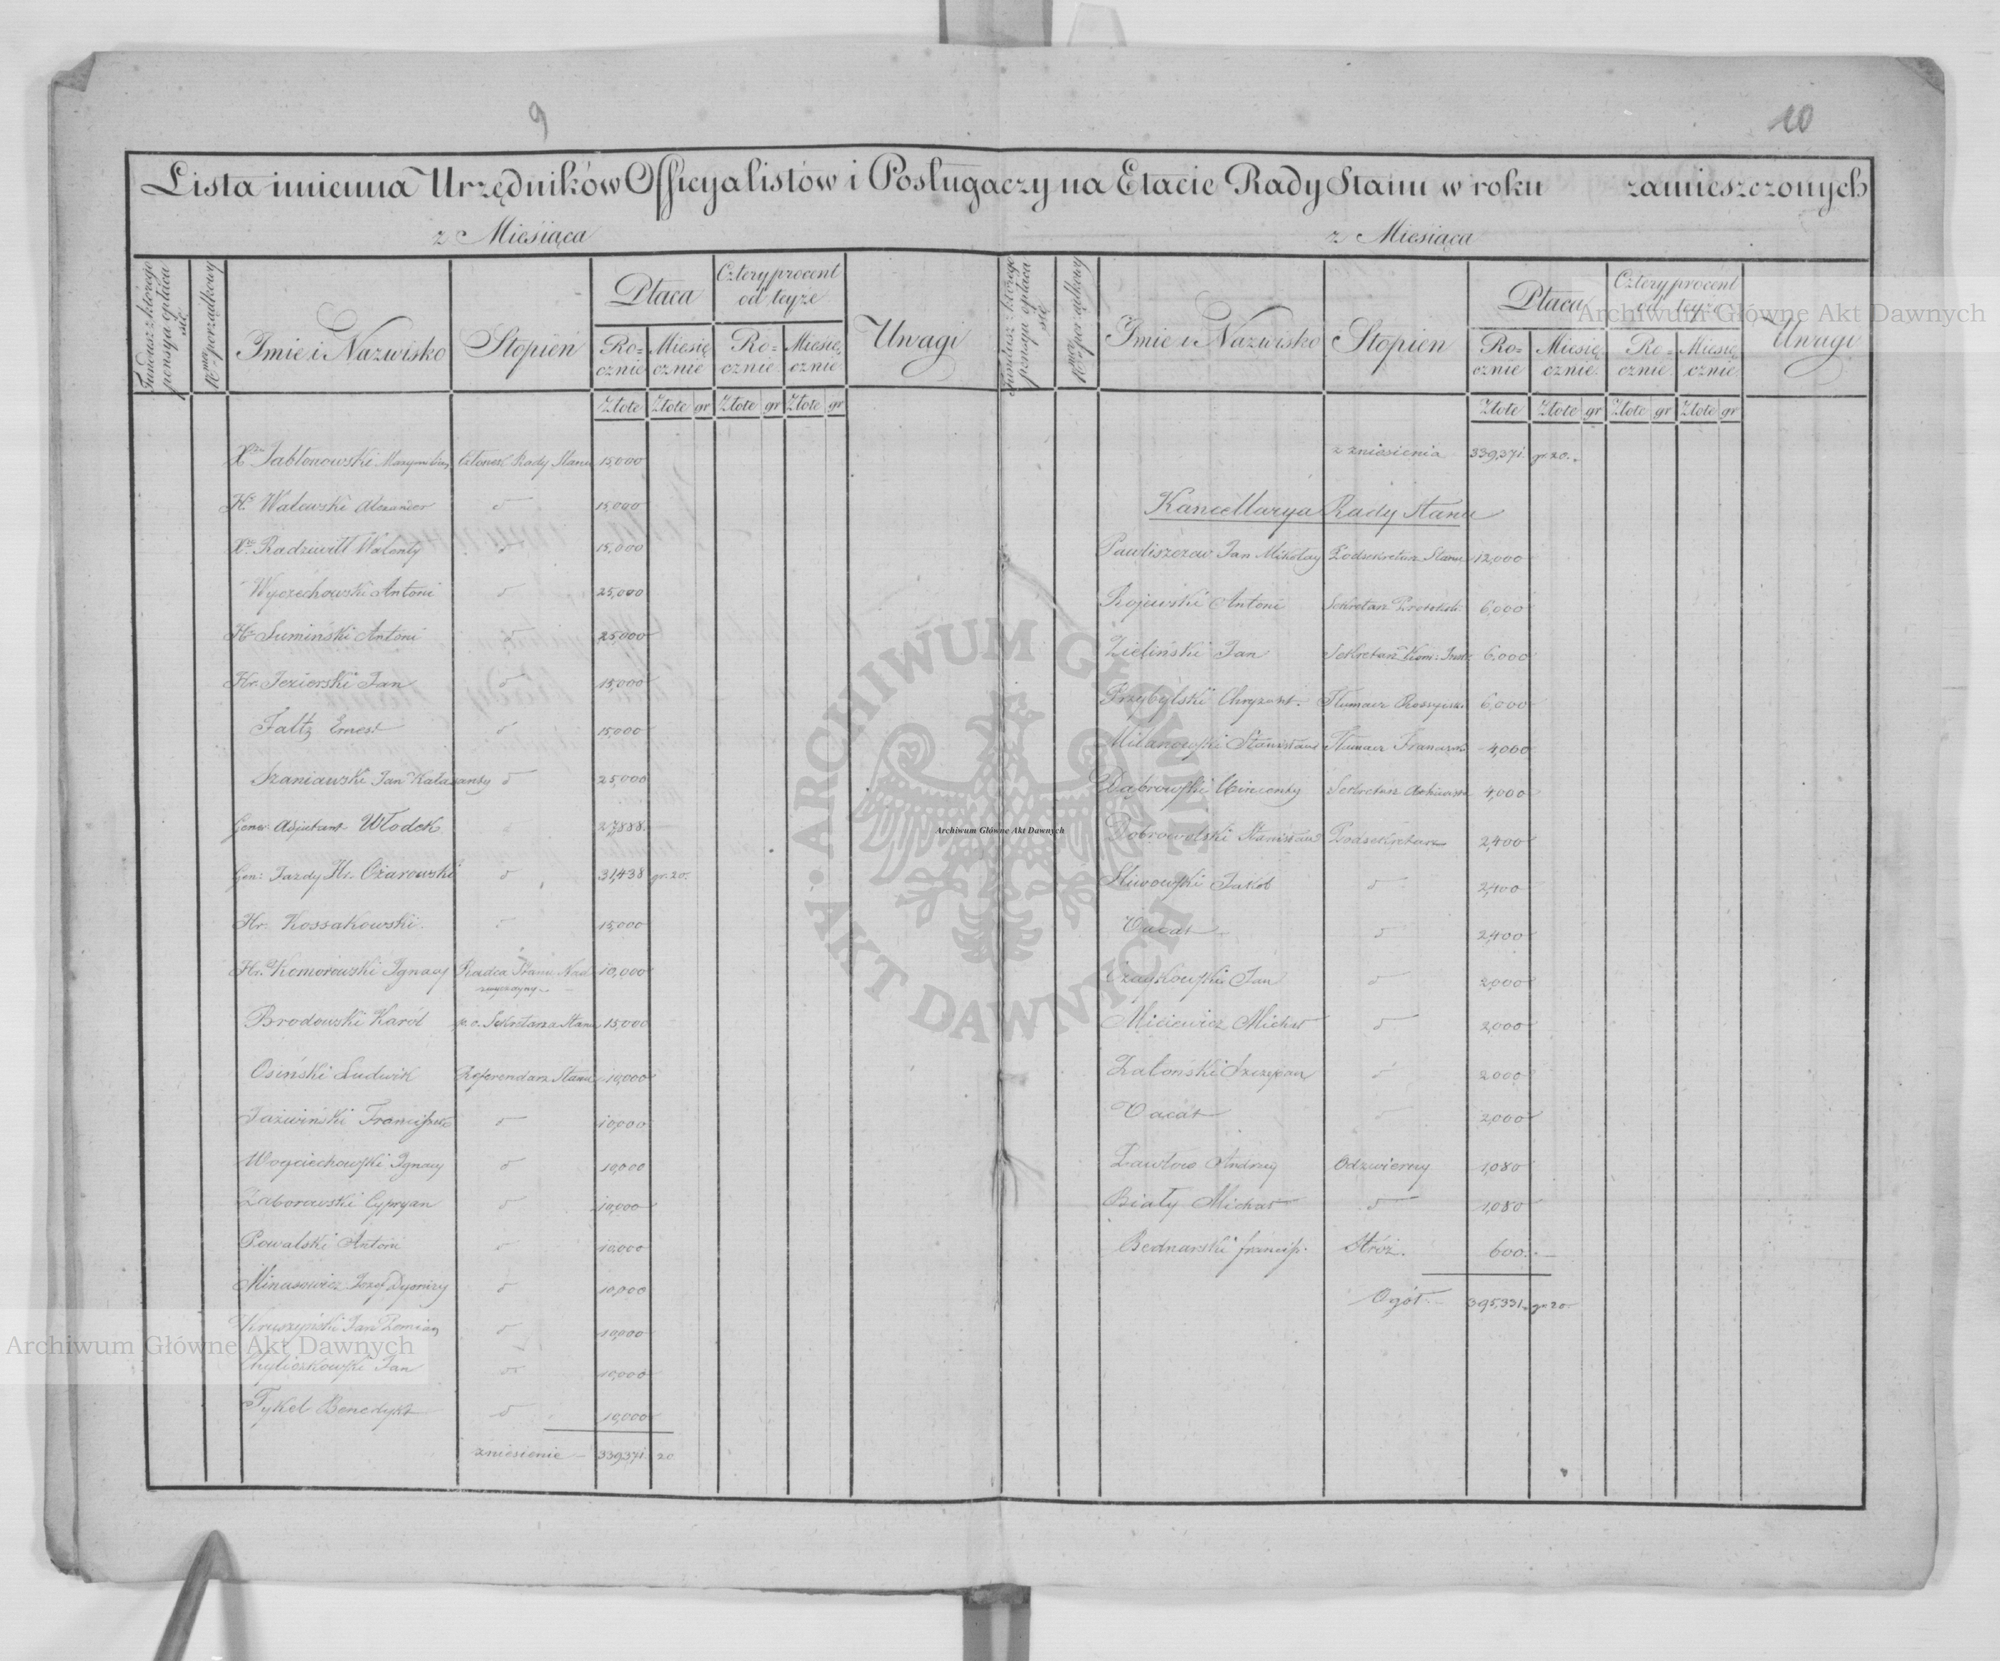 9
10
Lista imienna Urzędników Officyalistów i Posługaczy na Etacie Rady Stanu w roku zamieszczonych
z Miesiąca
z Miesiąca
Fundusz z którego pensya opłaca się
Nr porządkowy
Imie i Nazwisko
Stopień
Płaca
Cztery procent od teyże
Uwagi
Rocznie
Miesięcznie
Rocznie
Miesięcznie
Złote
Złote gr
Złote gr
Złote gr
Xże Jabłonowski Maxymilian Członek Rady Stanu 15,000
Hr. Walewski Alexander d 15,000
Xże Radziwiłł Walenty d 15,000
Wyczechowski Antoni d 25,000
Hr. Sumiński Antoni d 25,000
Hr. Jezierski Jan d 15,000
Faltz Ernest d 15,000
Szaniawski Jan Kalasanty d 25,000
Gener. Adjutant Włodek 27,888
Gen: Jazdy Hr. Ożarowski d 31,438 gr. 20.
Hr. Kossakowski 15,000
Hr. Komorowski Ignacy Radca Stanu Nad 10,000
zwyczayny
Brodowski Karól p. o. Sekretarza Stanu 15,000
Osiński Ludwik Referendarz Stanu 10,000
Jaźwiński Franciszek d 10,000
Woyciechowski Ignacy d 10,000
Zaborowski Cypryan d 10,000
Powalski Antoni d 10,000
Minasowicz Józef Dyonizy d 10,000
Kruszyński Jan d 10,000
Chyliczkowski Jan d 10,000
Tykel Benedykt d 10,000
zniesienie 339,371. 20
Fundusz z którego pensya opłaca się
Nr porządkowy
Imie i Nazwisko
Stopień
Płaca
Cztery procent od teyże
Uwagi
Rocznie
Miesięcznie
Rocznie
Miesięcznie
Złote
Złote gr
Złote gr
Złote gr
z zniesienia 339,371. gr. 20.
Kancellarya Rady Stanu
Pawliszczew Jan Mikołay Podsekretarz Stanu 12,000
Rojewski Antoni Sekretarz 6,000
Zieliński Jan Sekretarz 6,000
Przybylski Chryzant. Tłumacz Rossyiski 6,000
Milanowski Stanisław Tłumacz 4,000
Dąbrowski Wincenty Sekretarz 4,000
Dobrowolski Stanisław Podsekretarz 2,400
Śliwowski Jakób d 2,400
Vacat d 2,400
Czaykowski Jan d 2,000
Miciewicz Michał d 2,000
Załoński Szczepan d 2000
Vacat d 2,000
Pawłow Andrzey Odźwierny 1,080
Biały Michał d 1,080
Bednarski francisz. Stróż. 600
Ogół 395,331. gr 20
ARCHIWUM GŁÓWNE AKT DAWNYCH
Archiwum Główne Akt Dawnych
Archiwum Główne Akt Dawnych
Archiwum Główne Akt Dawnych